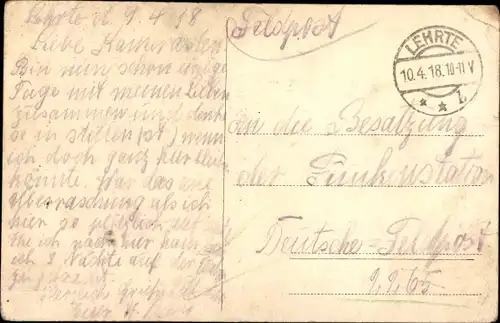 Lehrte d. 9.4.18
Feldpost
Liebe Kameraden
Bin nun schon einige
Tage mit meinen Lieben
zusammen und denke
so im stillen wenn
ich doch ganz hier bleiben
könnte. War das eine
Überraschung als ich
hier so plötzlich
ich nach hier kam
ich 3 Nächte auf der
LEHRTE
10.4.18.10-11 V
* * 1.
An die Besatzung
der Funkenstation
Deutsche-Feldpost
9265